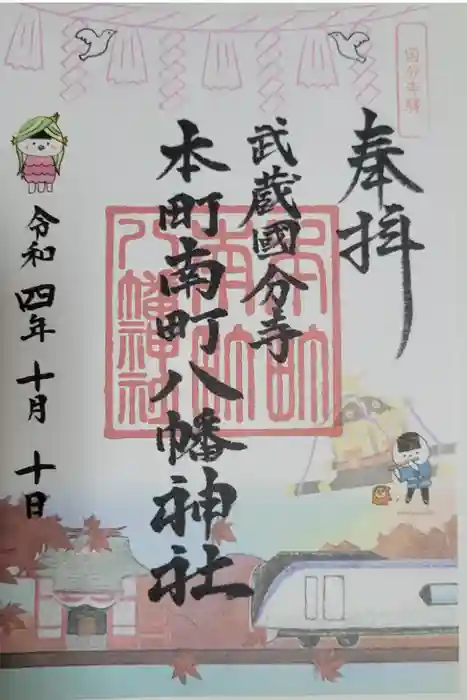 国分寺驛
奉拝
武蔵國分寺
本町南町八幡神社
本町南町八幡神社
令和四年十月十日